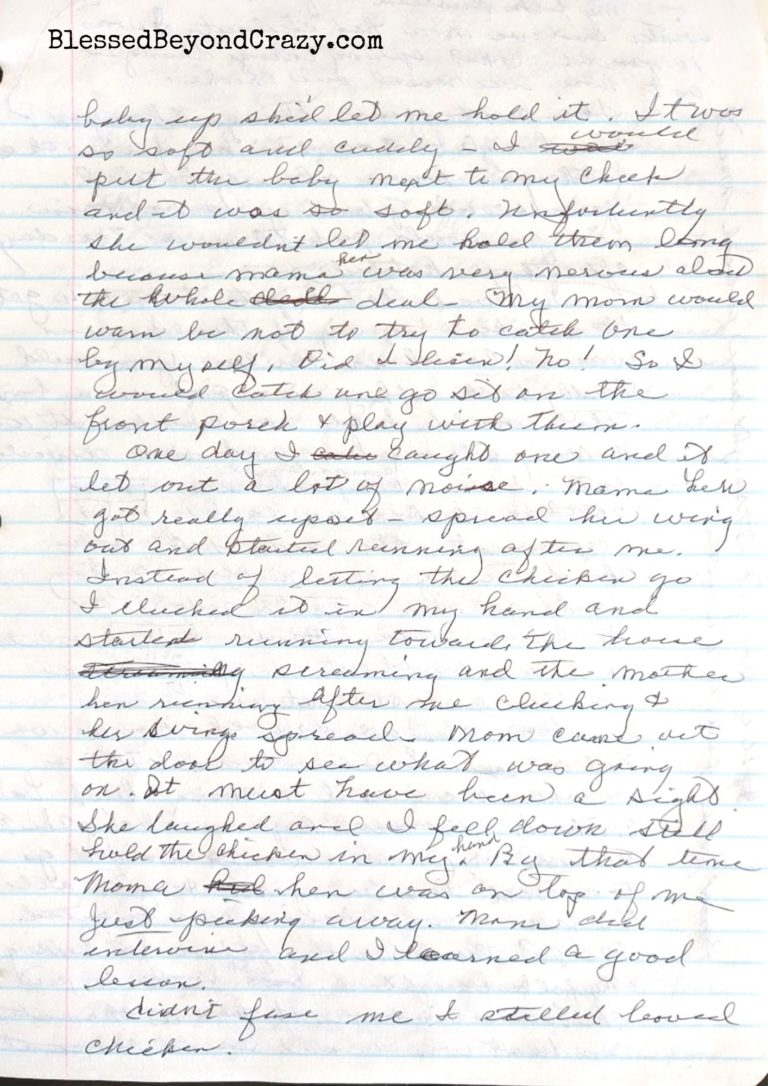 BlessedBeyondCrazy.com
baby up she'd let me hold it. It was
so soft and cuddly - I would
put the baby next to my cheek
and it was so soft. Unfortuntly
she wouldn't let me hold them long
because mama hen was very nervous about
the whole deal - My mom would
warn be not to try to catch one
by myself. Did I lisen! No! So I
would catch one go sit on the
front porch & play with them.
One day I caught one and it
let out a lot of noise. Mama hen
got really upset - spread her wing
out and started running after me.
Instead of letting the chicken go
I clucked it in my hand and
started running towards the house
screaming and the mother
hen running after me clucking &
her wings spread. Mom came out
the door to see what was going
on. It must have been a sight.
She laughed and I fell down still
hold the chicken in my hand. By that time
Moma hen was on top of me
Just picking away. Mom did
intervine and I learned a good
lesson.
Didn't fase me I stilled loved
chicken.